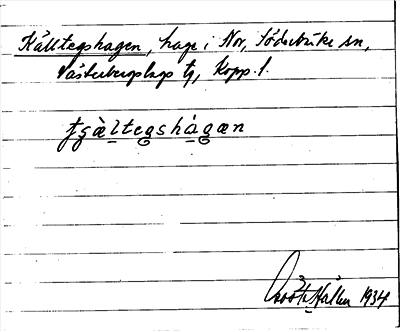 Källtegshagen, hage i Nor, Söderbärke sn,
Västerbergslags tg, Kopp. l.
fɟä̀ltegshágæn
Hallm 1934